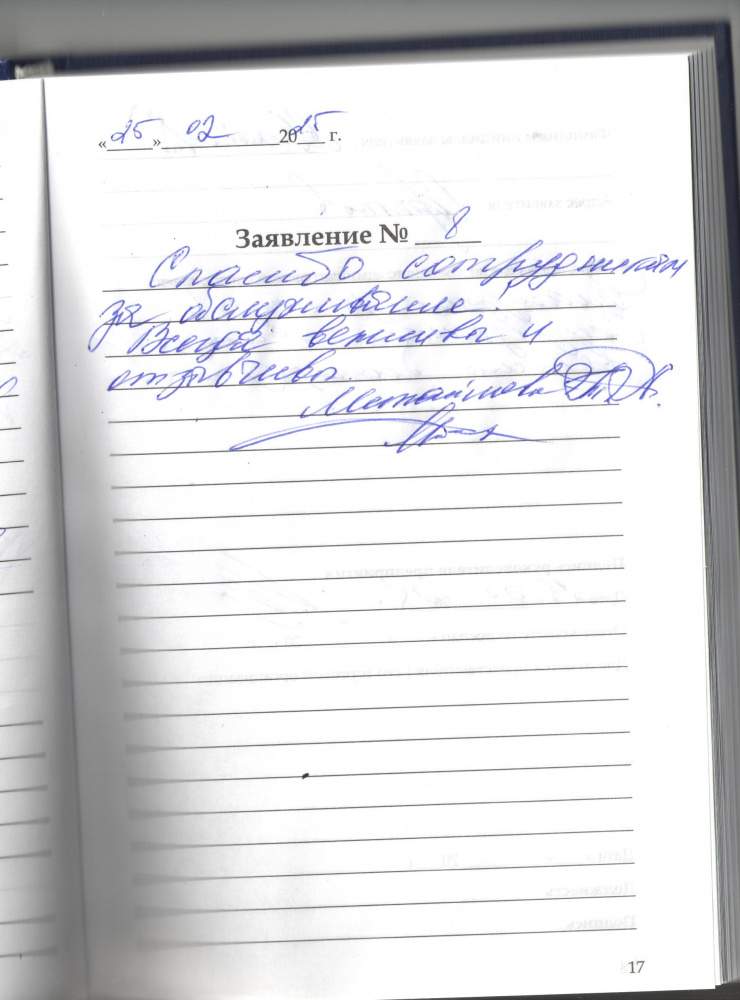 «25» 02 2015 г.
Заявление № 8
Спасибо сотрудникам
за обслуживание!
Всегда вежливы и
отзывчивы.
17